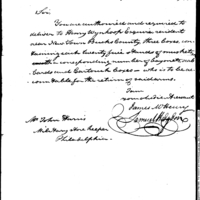 Sir,
You are authorized and required to
deliver to Henry Wynkoop Esquire resident
near New Town Bucks County three boxes con-
taining each twenty five Stands of muskets,
a corresponding number of bayonets and
Cards and Cartouch Boxes — who is to be ac-
countable for the return of said arms.
I am
your obed Servant
James McHenry
Samuel Hodgdon
Mr John Harris
Military Store keeper
Philadelphia